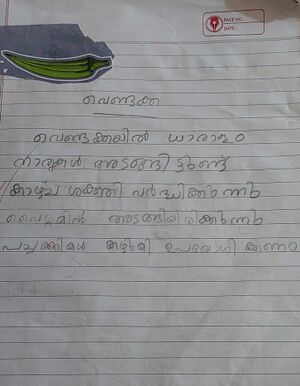 PAGE NO.
DATE:
വെണ്ടക്ക
വെണ്ടക്കയിൽ ധാരാളം
നാരുകൾ അടങ്ങിട്ടുണ്ട്
കാഴ്ച ശക്തി വർദ്ധിക്കുന്നു
വൈറ്റമിൻ അടങ്ങിയിരിക്കുന്നു
പച്ചക്കികൾ കഴുകി ഉപയോഗിക്കണം